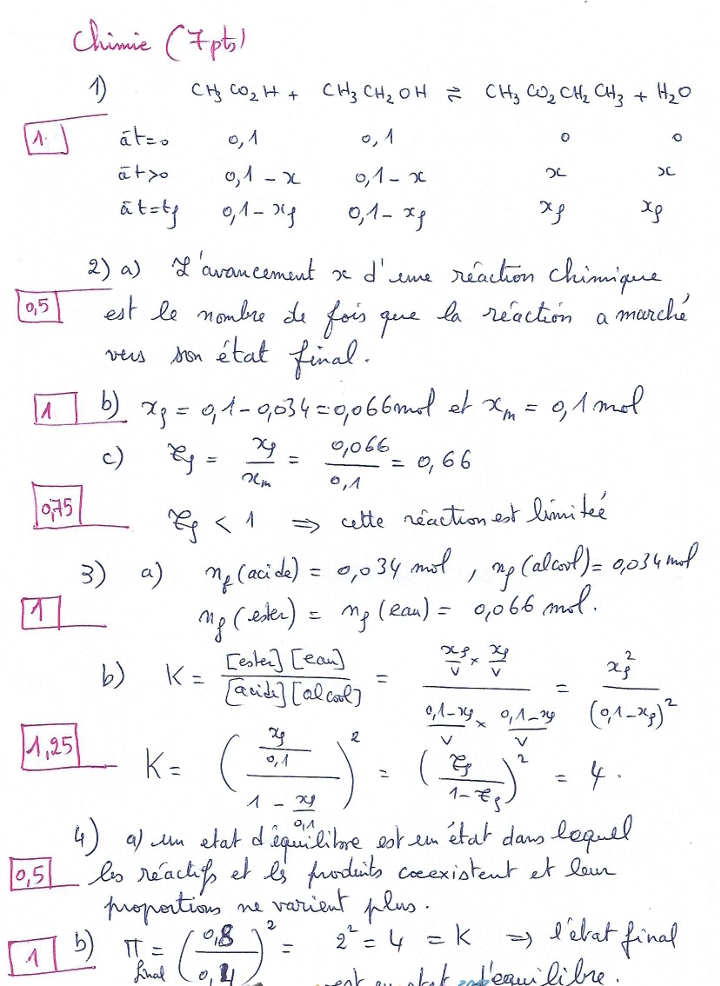 Chimie (7pts)
1) CH3CO2H + CH3CH2OH ⇌ CH3CO2CH2CH3 + H2O
1. à t=0 0,1 0,1 0 0
à t>0 0,1-x 0,1-x x x
à t=tf 0,1-xf 0,1-xf xf xf
2) a) L'avancement x d'une réaction chimique
0,5 est le nombre de fois que la réaction a marché
vers son état final.
1 b) xf = 0,1-0,034=0,066mol et xm = 0,1mol
c) τf = xf/xm = 0,066/0,1 = 0,66
0,75 τf < 1 ⇒ cette réaction est limitée
3) a) nf(acide) = 0,034 mol, nf(alcool)= 0,034mol
1 nf(ester) = nf(eau) = 0,066 mol.
b) K = [ester][eau]/[acide][alcool] = (xf/V × xf/V)/((0,1-xf)/V × (0,1-xf)/V) = xf²/(0,1-xf)²
1,25 K = ((xf/0,1)/(1 - xf/0,1))² = (τf/(1-τf))² = 4.
4) a) un etat d'équilibre est un état dans lequel
0,5 les réactifs et les produits coexistent et leur
proportions ne varient plus.
1 b) π final = (0,8/0,4)² = 2² = 4 = K ⇒ l'état final
est un état d'equilibre.